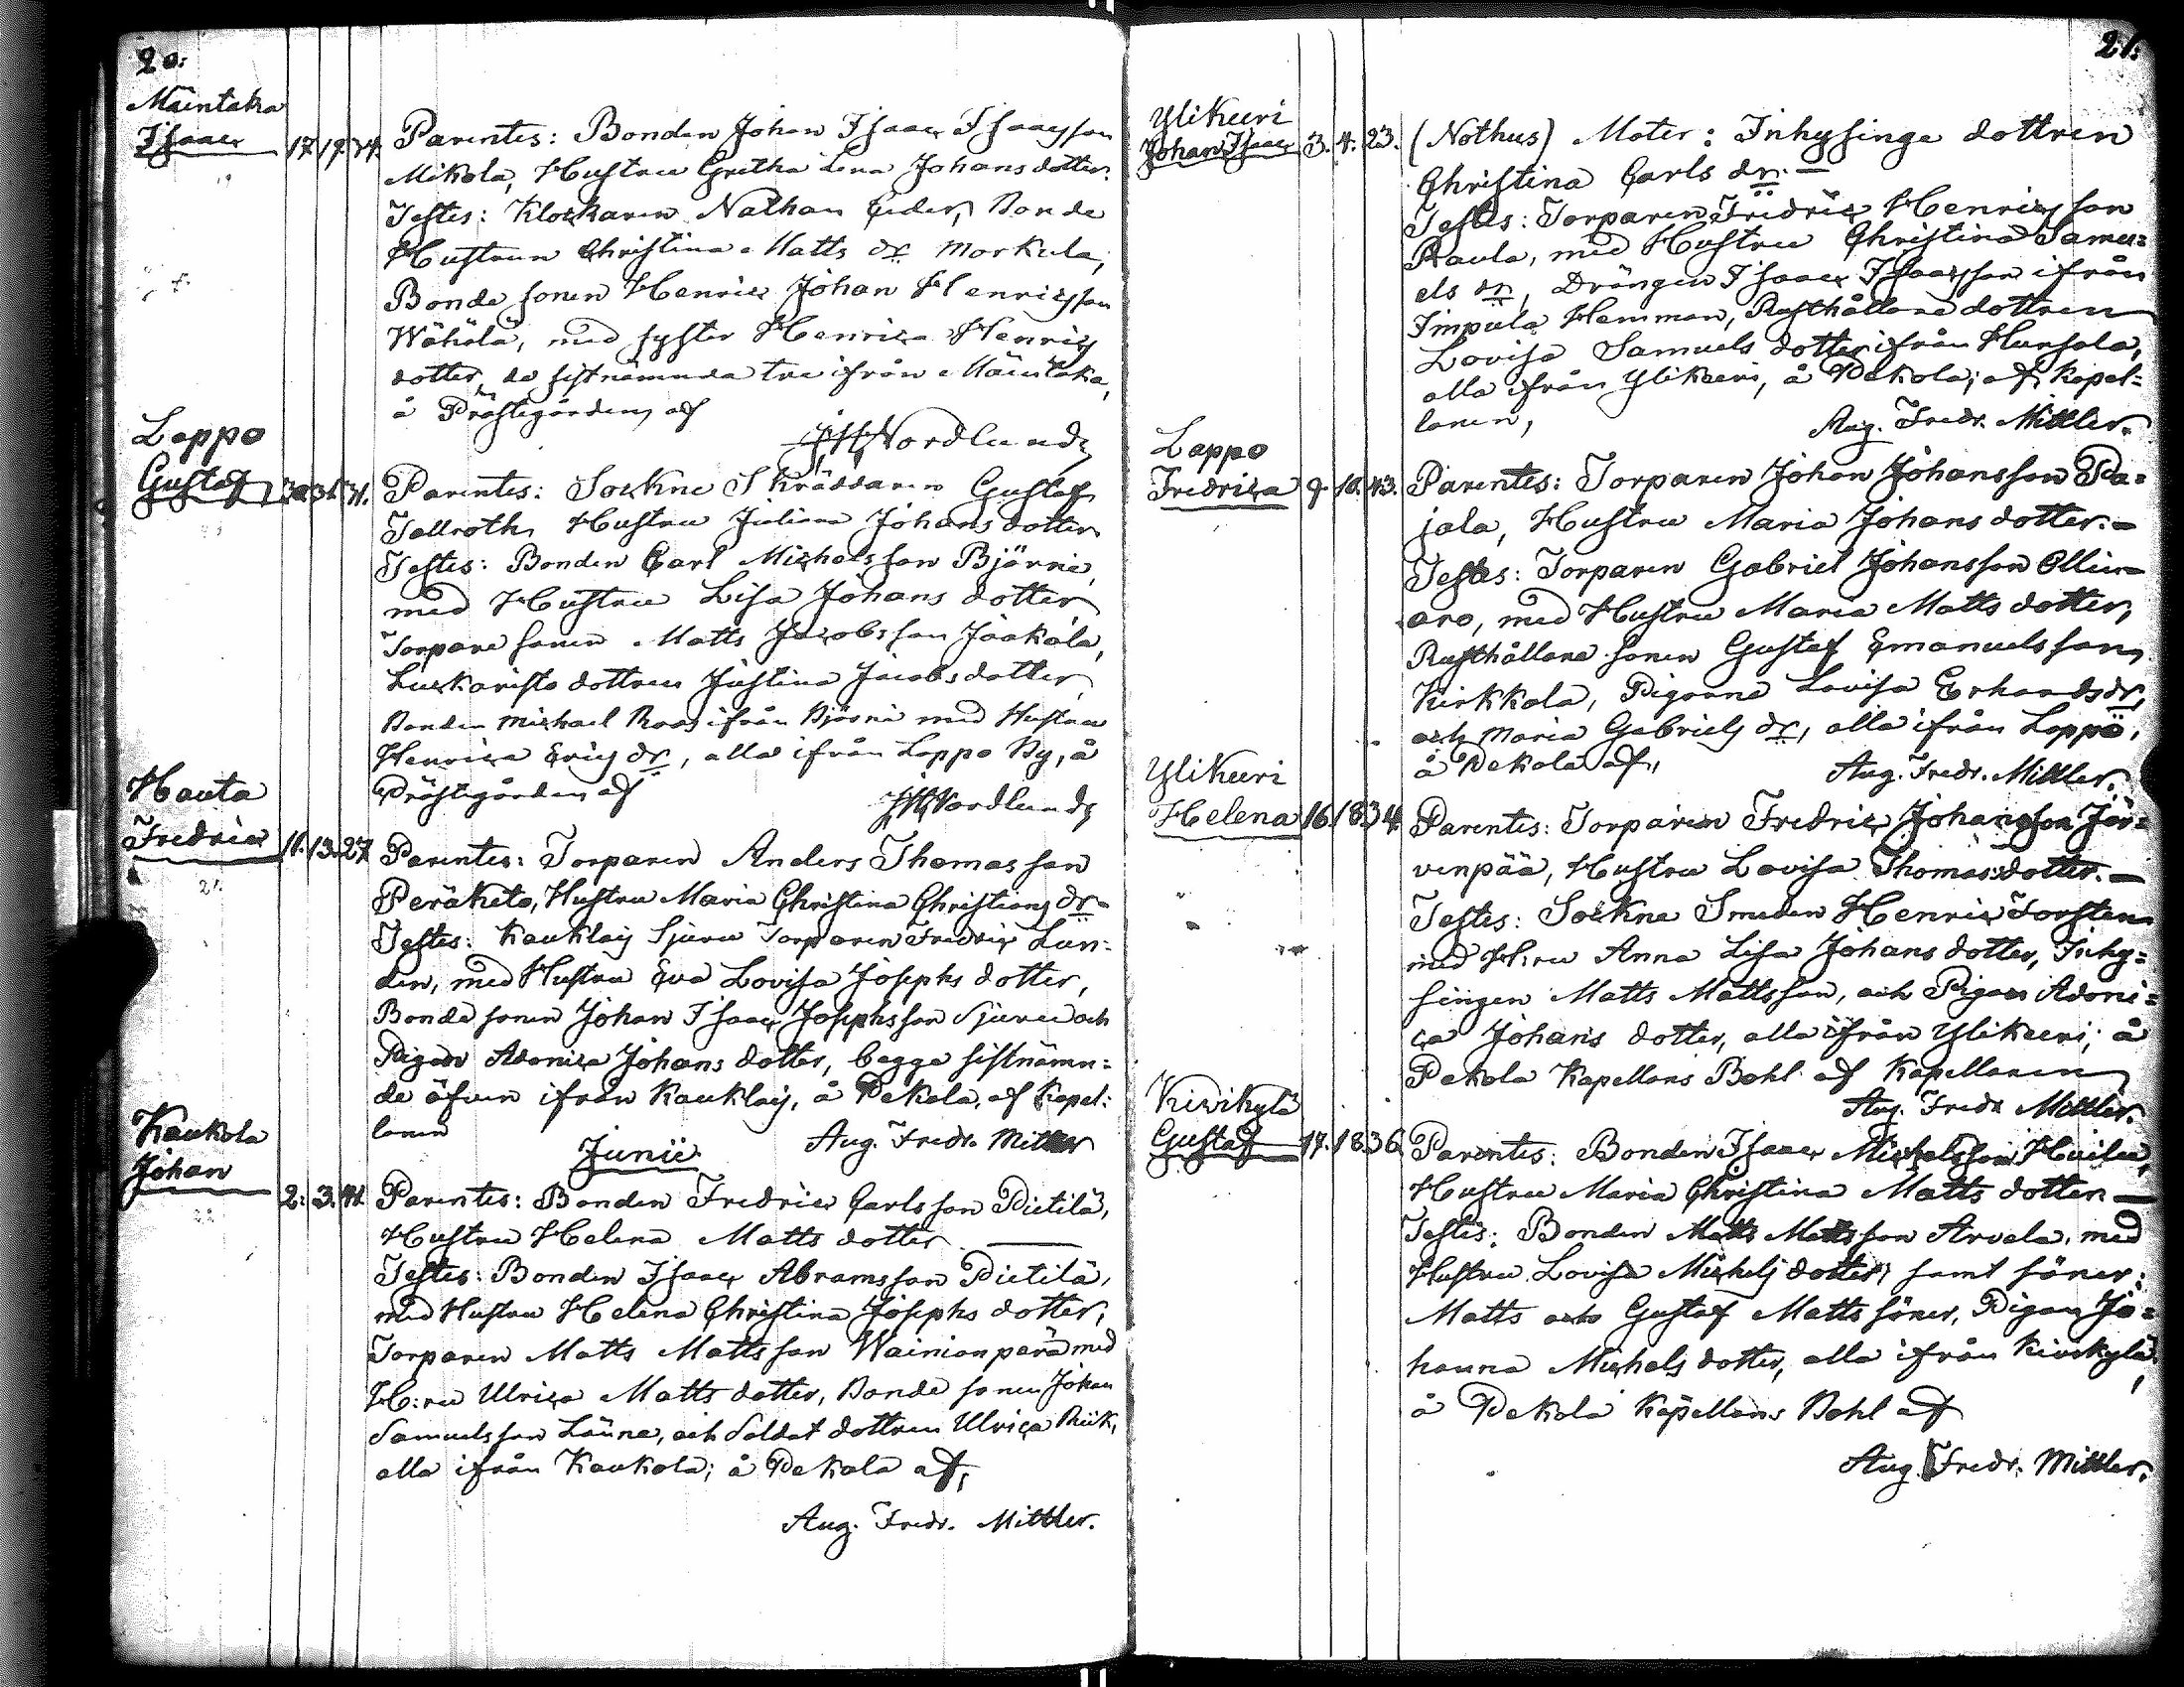 20.
Mäentaka
Isaac 17. 19. 34. Parentes: Bonden Johan Isaac Isaacsson
Mikola, Hustru Gretha Lena Johans dotter.
Testes: Klockaren Nathan Ceder, Bonde
Hustrun Christina Matts dr Morkula,
Bonde sonen Henric Johan Henricsson
Wähälä, med syster Henrica Henrics
dotter, de sistnämnda tre ifrån Mäentaka,
å Prästegården, af
Nordlund
Lappo
Gustaf 30. 31. 31. Parentes: Sockne Skräddaren Gustaf
Tallroth, Hustru Juliana Johans dotter
Testes: Bonden Carl Michelsson Björni,
med Hustru Lisa Johans dotter,
Torpare sonen Matts Jacobsson Jaakola,
dottren Justina Jacobs dotter,
Bonden Michael Roos ifrån Björni med Hustru
Henrica Erics dr, alla ifrån Lappo By, å
Prästegården af
Nordlund
Hauta
Fredric 11. 13. 27. Parentes: Torparen Anders Thomasson
Peräketo, Hustru Maria Christina Christians dr
Testes: Kauklais Sjuru Torparen Fredric Lun-
den, med Hustru Eva Lovisa Josephs dotter,
Bonde sonen Johan Isaac Josephsson Sjuru och
Pigan Adonica Johans dotter, begge sistnämn-
de äfven ifrån Kauklais, å Pekola, af Kapel-
lanen Aug. Fredr. Mittler
Junii
Kaukola
Johan 2. 3. 41. Parentes: Bonden Fredric Carlsson Pietilä,
Hustru Helena Matts dotter
Testes: Bonden Isaac Abramsson Pietilä,
med Hustru Helena Christina Josephs dotter,
Torparen Matts Mattsson Wainionperä med
H:ru Ulrica Matts dotter, Bonde sonen Johan
Samuelsson Laune, och Soldat dottren Ulrica Riik,
alla ifrån Kaukola; å Pekola af,
Aug. Fredr. Mittler.
21.
Ylikeeri
Johan Isaac 3. 4. 23. (Nothus) Mater: Inhysinge dottren
Christina Carls dr. —
Testes: Torparen Fredric Henricsson
Raula, med Hustru Christina Samu-
els dr, Drängen Isaac Isaacsson ifrån
Simpula Hemman, Rusthållare dottren
Lovisa Samuels dotter ifrån Hursala,
alla ifrån Ylikeeri, å Pekola; af Kapel-
lanen, Aug. Fredr. Mittler.
Lappo
Fredrica 9. 10. 43. Parentes: Torparen Johan Johansson Pa-
jala, Hustru Maria Johans dotter. —
Testes: Torparen Gabriel Johansson Ollin-
aro, med Hustru Maria Matts dotter,
Rusthållare sonen Gustaf Emanuelsson
Kirkkola, Pigorne Lovisa Erhards dr,
och Maria Gabriels dr, alla ifrån Lappo,
å Pekola af, Aug. Fredr. Mittler.
Ylikeeri
Helena 16. 18. 34. Parentes: Torparen Fredric Johansson Jär-
venpää, Hustru Lovisa Thomas dotter. —
Testes: Sockne Smeden Henric Torsten
med H:ru Anna Lisa Johans dotter, Inhy-
singen Matts Mattsson, och Pigan Adoni-
ca Johans dotter, alla ifrån Ylikeeri; å
Pekola Kapellans Bohl af Kapellanen
Aug. Fredr. Mittler.
Kivikylä
Gustaf 17. 18. 36. Parentes: Bonden Isaac Michelsson Huilu,
Hustru Maria Christina Matts dotter —
Testes: Bonden Matts Mattsson Arvela, med
Hustru Lovisa Michels dotter, samt söner:
Matts och Gustaf Matts söner, Pigan Jo-
hanna Michels dotter, alla ifrån Kivikylä,
å Pekola Kapellans Bohl af
Aug. Fredr. Mittler.